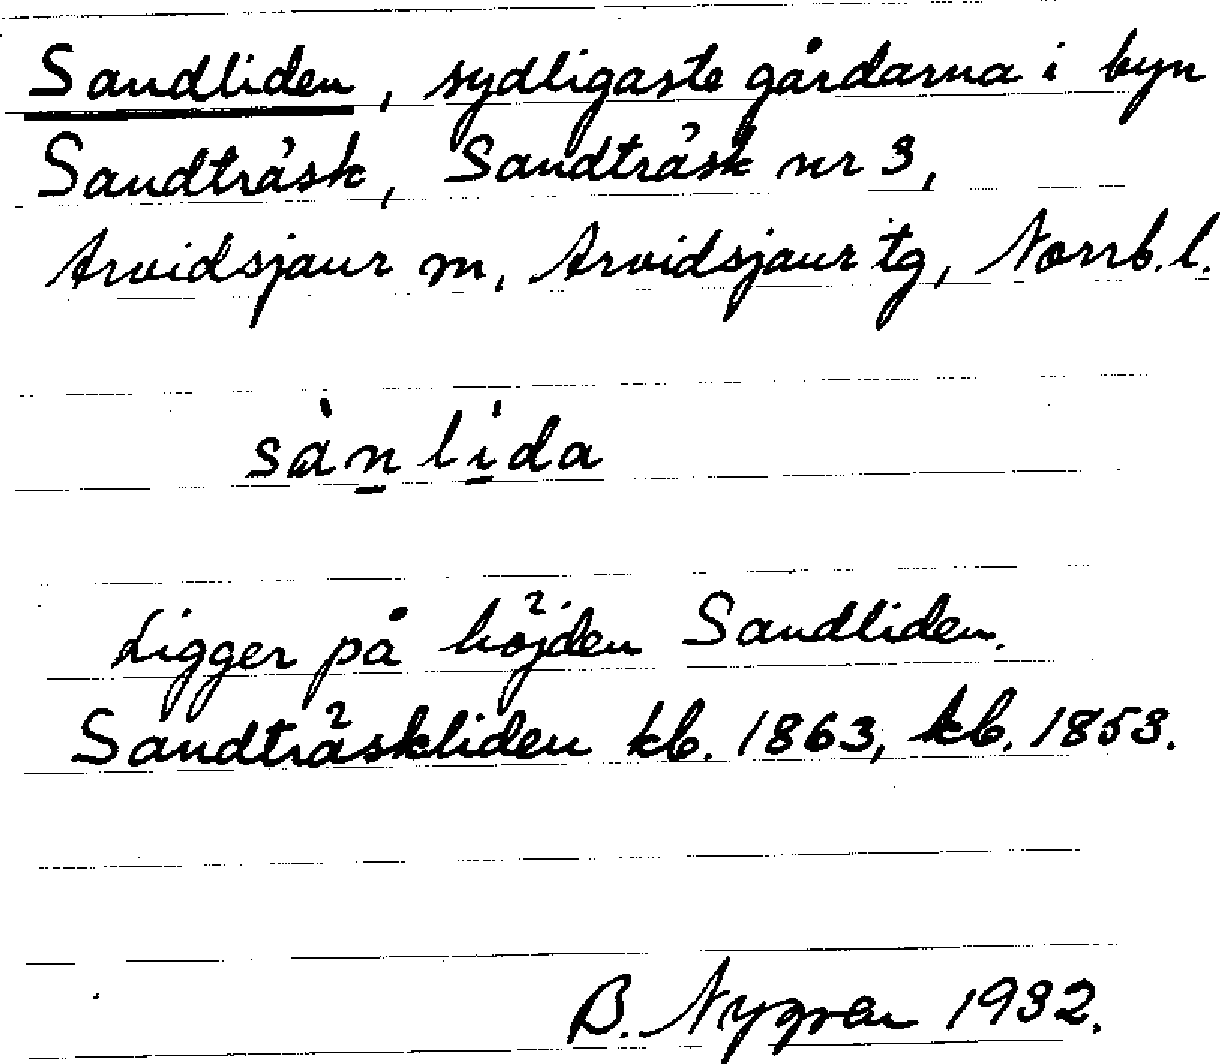 Sandliden, sydligaste gårdarna i byn
Sandträsk, Sandträsk nr 3,
Arvidsjaur m, Arvidsjaur tg, Norrb. l.
sànlída
Ligger på höjden Sandliden.
Sandträskliden kb. 1863, kb. 1853.
B. Nygren 1932.